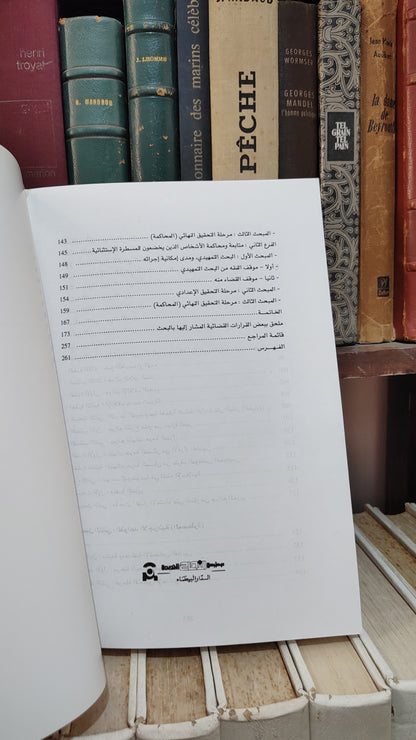 henri
troyat
flammarion
G. HANOTAU
J. LHOMME
onnaire des marins célèb
PÊCHE
GEORGES
WORMSER
GEORGES
MANDEL
l'homme politique
TEL
GRAIN
TEL
PAIN
- المبحث الثالث : مرحلة التحقيق النهائي (المحاكمة) 143
الفرع الثاني : متابعة ومحاكمة الأشخاص الذين يخضعون للمسطرة الإستثنائية 145
- المبحث الأول : البحث التمهيدي، ومدى إمكانية إجرائه 148
- أولا - موقف الفقه من البحث التمهيدي 149
- ثانيا - موقف القضاء منه 151
- المبحث الثاني : مرحلة التحقيق الإعدادي 154
- المبحث الثالث : مرحلة التحقيق النهائي (المحاكمة) 159
الخاتمة 167
ملحق ببعض القرارات القضائية المشار إليها بالبحث 173
قائمة المراجع 257
الفهرس 261
الدار البيضاء